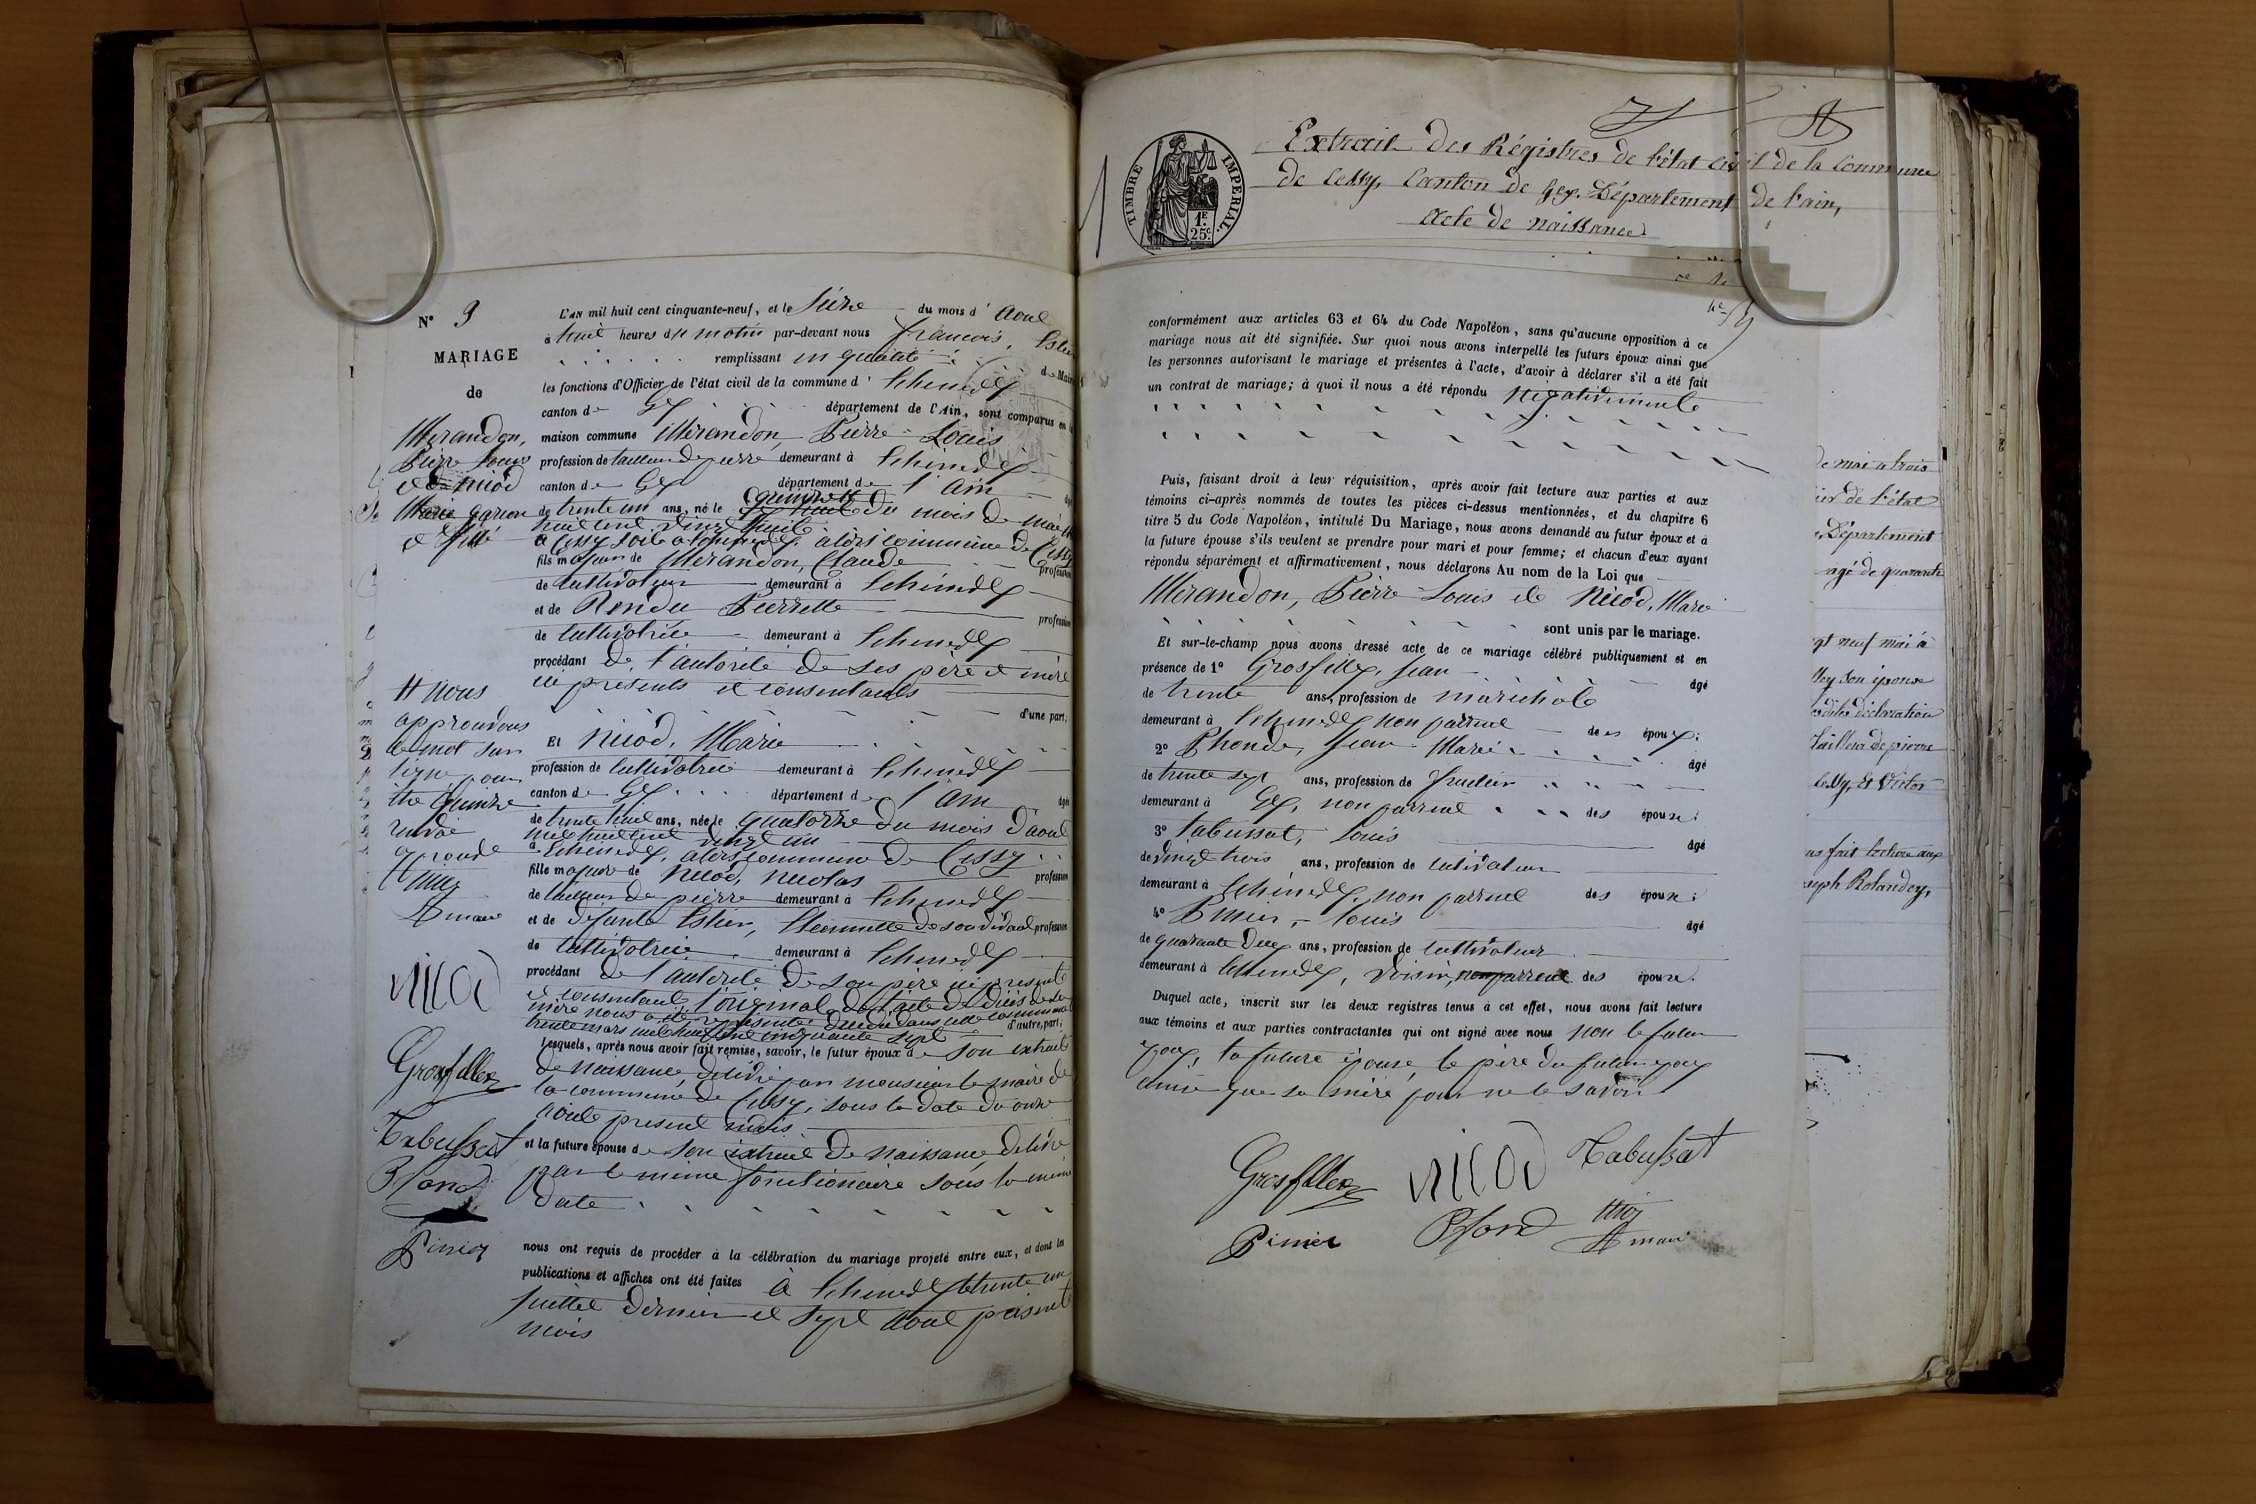 N° 9
MARIAGE
de
Merandon,
Pierre Louis
et Nicod
Marie garçon
et fille
L'AN mil huit cent cinquante-neuf, et le seize du mois d'Aout
à huit heures du matin par-devant nous françois,
remplissant en qualité de Maire
les fonctions d'Officier de l'état civil de la commune d' Echenevex
canton de Gex département de l'Ain, sont comparus en la
maison commune Merandon, Pierre-Louis
profession de tailleur de pierre demeurant à Echenevex
canton de Gex département de l'Ain âgé
de trente un ans, né le quinze du mois de mai mil
huit cent vingt huit
à Cessy soit à Echenevex alors commune de Cessy
fils majeur de Merandon, Claude profession
de cultivateur demeurant à Echenevex
et de Rendu Pierrette profession
de cultivatrice demeurant à Echenevex
procédant de l'autorité de ses père et mère
ici présents et consentants
d'une part;
Et Nicod, Marie
profession de cultivatrice demeurant à Echenevex
canton de Gex département de l'Ain âgée
de trente huit ans, née le quatorze du mois d'aout
mil huit cent vingt un
à Echenevex, alors commune de Cessy
fille majeure de Nicod, Nicolas profession
de tailleur de pierre demeurant à Echenevex
et de défunte Estier, Etiennette de son vivant profession
de cultivatrice demeurant à Echenevex
procédant de l'autorité de son père ici présent
et consentant l'original de l'acte de décès de sa
mère nous a été représenté décédée dans cette commune le
trente mars mil huit cent cinquante sept d'autre part;
Lesquels, après nous avoir fait remise, savoir, le futur époux de son extrait
de naissance, délivré par monsieur le maire de
la commune de Cessy, sous la date du onze
aoute présent mois
et la future épouse de son extrait de naissance, délivré
par le même fonctionaire sous la même
date
nous ont requis de procéder à la célébration du mariage projeté entre eux, et dont les
publications et affiches ont été faites à Echenevex le trente un
juillet dernier et sept aout présent
mois
# nous
approuvons
le mot sur
ligne pour
tre quinze
NICOD
Grosfillex
Tabussat
Blond
Pinier
TIMBRE IMPÉRIAL
1F
25c
Extrait des Régistres de l'état civil de la Commune
de Cessy, Canton de Gex. Département de l'ain,
Acte de naissance
conformément aux articles 63 et 64 du Code Napoléon, sans qu'aucune opposition à ce
mariage nous ait été signifiée. Sur quoi nous avons interpellé les futurs époux ainsi que
les personnes autorisant le mariage et présentes à l'acte, d'avoir à déclarer s'il a été fait
un contrat de mariage; à quoi il nous a été répondu négativement
Puis, faisant droit à leur réquisition, après avoir fait lecture aux parties et aux
témoins ci-après nommés de toutes les pièces ci-dessus mentionnées, et du chapitre 6
titre 5 du Code Napoléon, intitulé Du Mariage, nous avons demandé au futur époux et à
la future épouse s'ils veulent se prendre pour mari et pour femme; et chacun d'eux ayant
répondu séparément et affirmativement, nous déclarons Au nom de la Loi que
Merandon, Pierre-Louis et Nicod, Marie
sont unis par le mariage.
Et sur-le-champ nous avons dressé acte de ce mariage célébré publiquement et en
présence de 1° Grosfillex, Jean âgé
de trente ans, profession de maréchal
demeurant à Echenevex non parent des époux;
2° Jean Marie âgé
de trente sept ans, profession de fruitier
demeurant à Gex, non parent des époux;
3° Tabussat, Louis âgé
de vingt trois ans, profession de cultivateur
demeurant à Echenevex, non parent des époux;
4° Pinier, Louis âgé
de quarante deux ans, profession de cultivateur
demeurant à Echenevex, voisin, non parent des époux.
Duquel acte, inscrit sur les deux registres tenus à cet effet, nous avons fait lecture
aux témoins et aux parties contractantes qui ont signé avec nous non le futur
époux, la future épouse, le père du futur époux
ainsi que sa mère pour ne le savoir
Grosfillex NICOD Tabussat
Pinier Blond
de mai a trois
ier de l'état
Département
agé de quarante
gt neuf mai à
ley son épouse
dites déclaration
tailleur de pierre
Cessy, et Victor
us fait lecture aux
seph Rolandez,